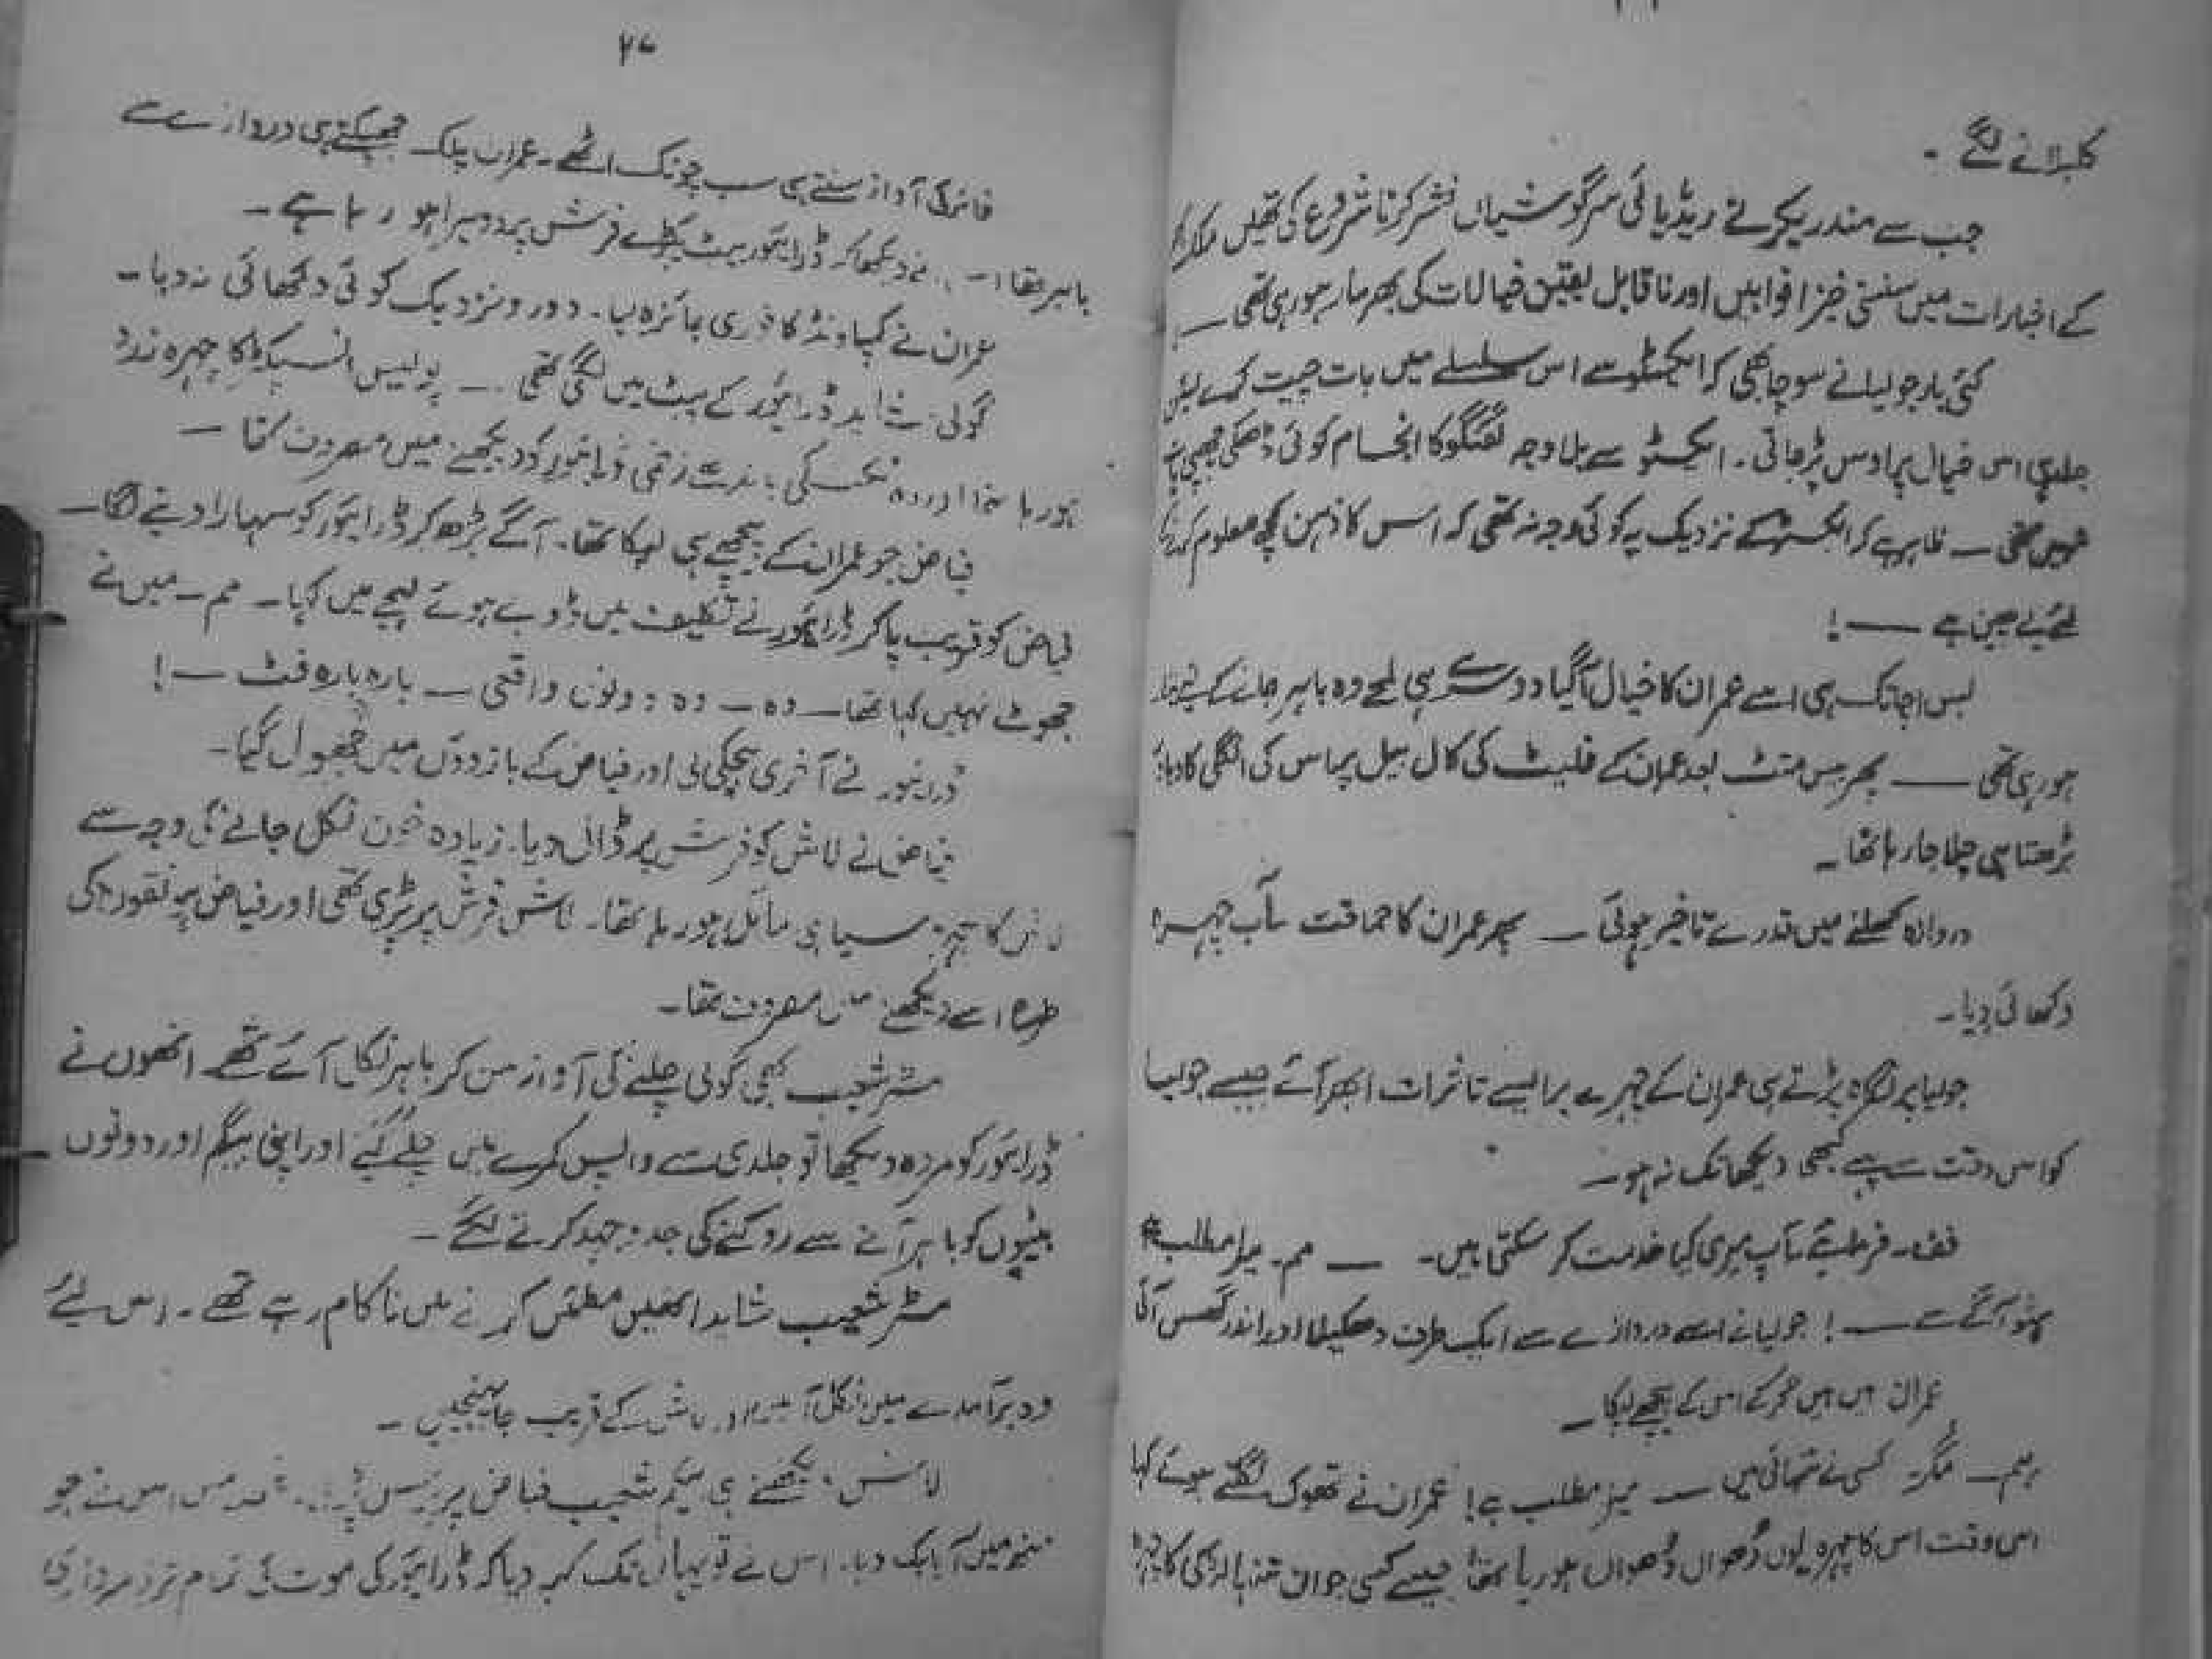 کلبلانے لگے ۔
جب سے مندر ریکر نے ریڈیائی سرگوشیاں نشر کرنا شروع کی تھیں
کے اخبارات میں سنسنی خیز افواہیں اور ناقابل یقین خیالات کی بھرمار ہو رہی تھی —
کئی بار جولیا نے سوچا بھی کہ ایکسٹو سے اس سلسلے میں بات چیت کرے لیکن
جلد ہی اس خیال پر اوس پڑ جاتی ۔ ایکسٹو سے بلا وجہ گفتگو کا انجام کوئی ڈھکی چھپی بات
نہیں تھی — ظاہر ہے کہ ایکسٹو کے نزدیک یہ کوئی وجہ نہ تھی کہ اس کا ذہن کچھ معلوم کرنے کے
لئے بے چین ہے — !
بس اچانک ہی اسے عمران کا خیال آگیا دوسرے ہی لمحے وہ باہر جانے کے لئے تیار
ہو رہی تھی — پھر بیس منٹ بعد عمران کے فلیٹ کی کال بیل پر اس کی انگلی کا دباؤ
بڑھتا ہی چلا جا رہا تھا ۔
دروازہ کھلنے میں قدرے تاخیر ہوئی — پھر عمران کا حماقت مآب چہرہ
دکھائی دیا ۔
جولیا پر نگاہ پڑتے ہی عمران کے چہرے پر ایسے تاثرات ابھر آئے جیسے جولیا
کو اس وقت سے پہلے کبھی دیکھا تک نہ ہو ۔
فف ۔ فرمایئے آپ میری کیا خدمت کر سکتی ہیں ۔ — مم ۔ میرا مطلب
ہٹو آگے سے — ! جولیا نے اسے دروازے سے ایک طرف دھکیلا اور اندر گھس آئی
عمران ہیں ہیں کر کے اس کے پیچھے لپکا ۔
مگر کسی نے تنہائی میں — میرا مطلب ہے ! عمران نے تھوک نگلتے ہوئے کہا
اس وقت اس کا چہرہ یوں دھواں دھواں ہو رہا تھا جیسے کسی جوان تنہا لڑکی کا چہرہ
۲۷
فائر کی آواز سنتے ہی سب چونک اٹھے ۔ عمران پلک جھپکتے ہی دروازے سے
باہر تھا نے دیکھا کہ ڈرائیور پیٹ پکڑے فرش پر دوہرا ہو رہا ہے ۔
عمران نے کمپاونڈ کا فوری جائزہ لیا ۔ دور و نزدیک کوئی دکھائی نہ دیا ۔
گولی شاید ڈرائیور کے پیٹ میں لگی تھی ۔ — پولیس انسپکٹر کا چہرہ زرد
ہو رہا تھا اور وہ زخمی ڈرائیور کو دیکھنے میں مصروف تھا —
فیاض جو عمران کے پیچھے ہی لپکا تھا ۔ آگے بڑھ کر ڈرائیور کو سہارا دینے لگا —
فیاض کو قریب پا کر ڈرائیور نے تکلیف میں ڈوبے ہوئے لہجے میں کہا ۔ مم ۔ میں نے
جھوٹ نہیں کہا تھا — وہ — وہ دونوں واقعی — بارہ بارہ فٹ — !
ڈرائیور نے آخری ہچکی لی اور فیاض کے بازووں میں جھول گیا ۔
فیاض نے لاش کو فرش پر ڈال دیا ۔ زیادہ خون نکل جانے کی وجہ سے
لاش کا چہرہ سیاہی مائل ہو رہا تھا ۔ لاش فرش پر پڑی تھی اور فیاض
طرح اسے دیکھنے میں مصروف تھا ۔
مسٹر شعیب بھی گولی چلنے کی آواز سن کر باہر نکل آئے تھے انھوں نے
ڈرائیور کو مردہ دیکھا تو جلدی سے واپس کمرے میں چلے گئے اور اپنی بیگم اور دونوں
بیٹیوں کو باہر آنے سے روکنے کی جدوجہد کرنے لگے ۔
مسٹر شعیب شاید انھیں مطمئن کرنے میں ناکام رہے تھے ۔ اس لئے
وہ برآمدے میں نکل آئیں اور لاش کے قریب جا پہنچیں ۔
لاش دیکھتے ہی بیگم شعیب فیاض پر برس
منھ میں آیا بک دیا ۔ اس نے تو یہاں تک کہہ دیا کہ ڈرائیور کی موت کی تمام تر ذمہ داری